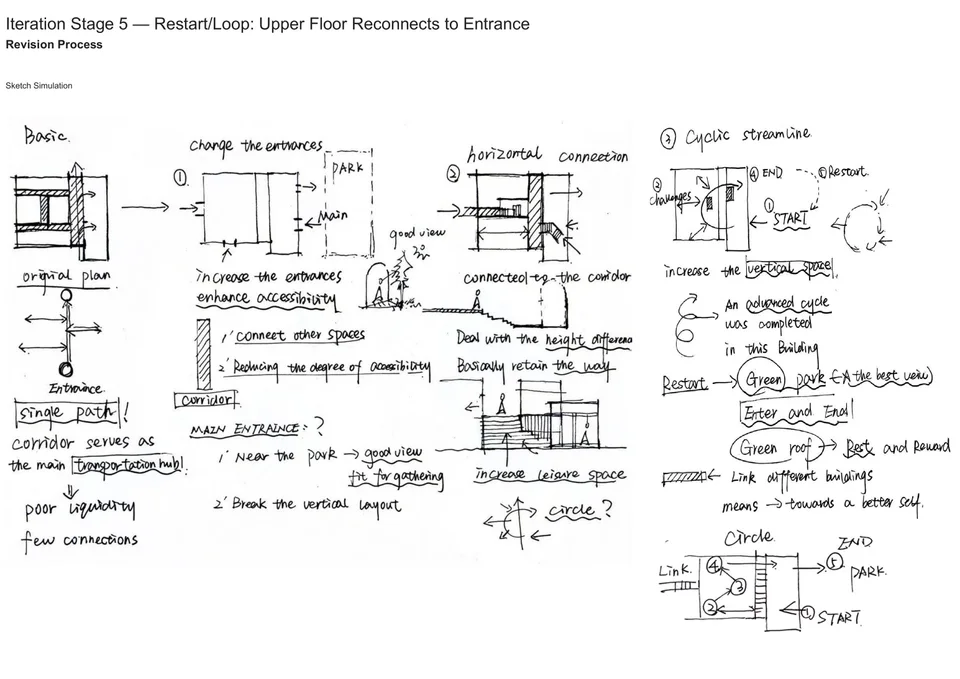 Iteration Stage 5 — Restart/Loop: Upper Floor Reconnects to Entrance
Revision Process
Sketch Simulation
Basic.
original plan
Entraince.
single path!
corridor serves as
the main transportation hub!
poor liquidity
few connections
change the entrances
①
PARK
Main
good view
increase the entrances
enhance accessibility
1' connect other spaces
2' Reducing the degree of accessibility
corridor
MAIN ENTRAINCE: ?
1' Near the park → good view
fit for gathering
2' Break the vertical layout
②
horizontal connection
connected to the corridor
Deal with the height differena
Basically retain the way
increase leisure space
circle ?
③ Cyclic streamline
② challenges
④ END
⑤ Restart.
① START
increase the vertical space
An advanced cycle
was completed
in this Building
Restart → Green park (A the best veiw)
Enter and End
Green roof → Rest and Reward
Link different buildings
means → towards a better self.
Circle
Link.
④
③
②
END
⑤
PARK.
① START